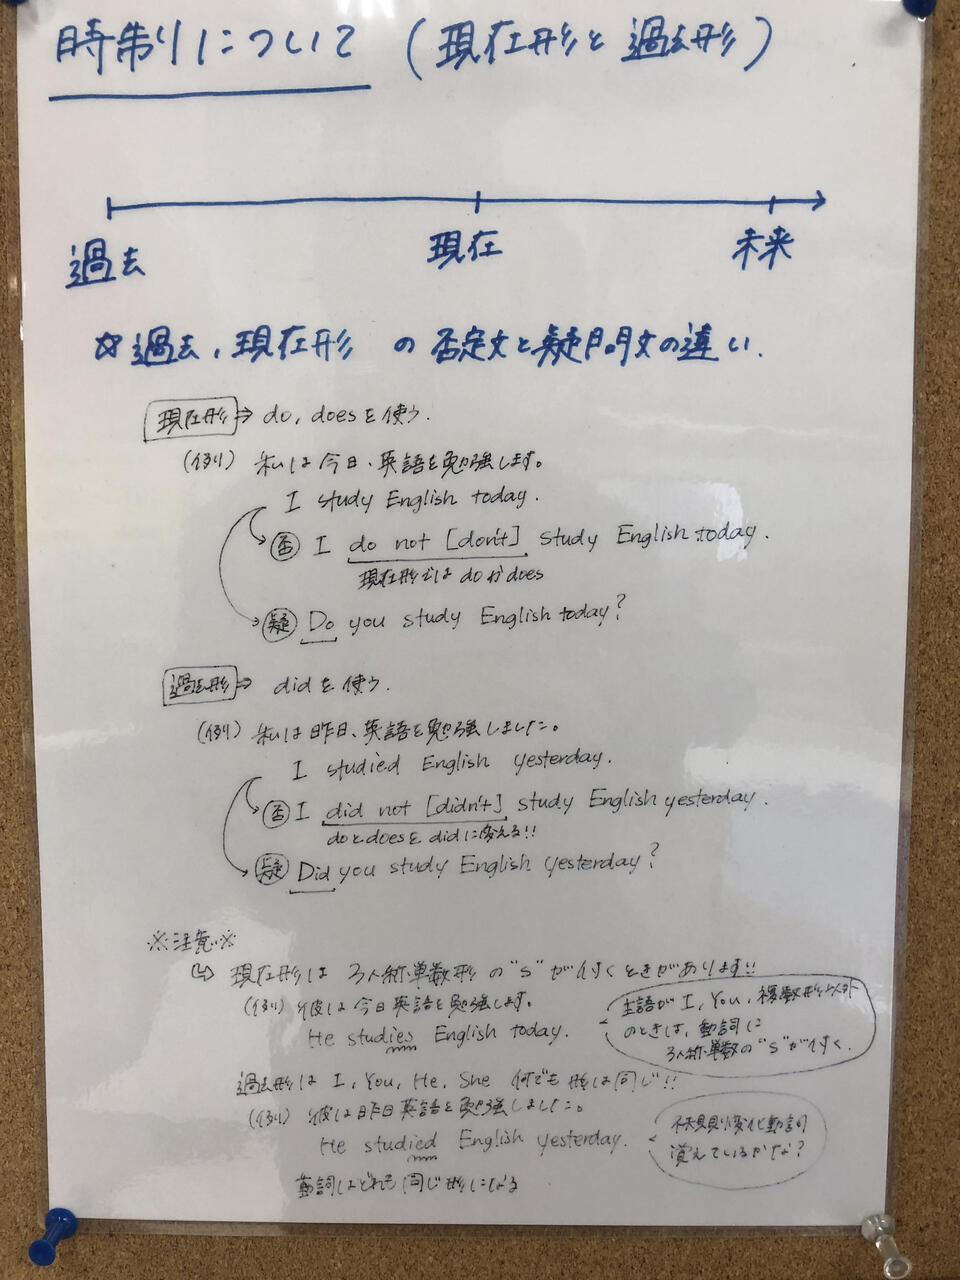 時制について (現在形と過去形)
過去 現在 未来
☆過去，現在形 の 否定文と疑問文の違い．
現在形 ⇒ do, does を使う．
(例) 私は今日、英語を勉強します。
I study English today.
否 I do not [don't] study English today.
現在形では do か does
疑 Do you study English today?
過去形 ⇒ did を使う．
(例) 私は昨日、英語を勉強しました。
I studied English yesterday.
否 I did not [didn't] study English yesterday.
do と does を did に変える!!
疑 Did you study English yesterday?
※注意※
↳ 現在形は 3人称単数形の"s"が付くときがあります!!
(例) 彼は今日英語を勉強します。
He studies English today.
主語が I, You, 複数形以外
のときは、動詞に
3人称単数の"s"が付く．
過去形は I, You, He, She 何でも形は同じ!!
(例) 彼は昨日英語を勉強しました。
He studied English yesterday.
不規則変化動詞
覚えているかな?
動詞はどれも同じ形になる